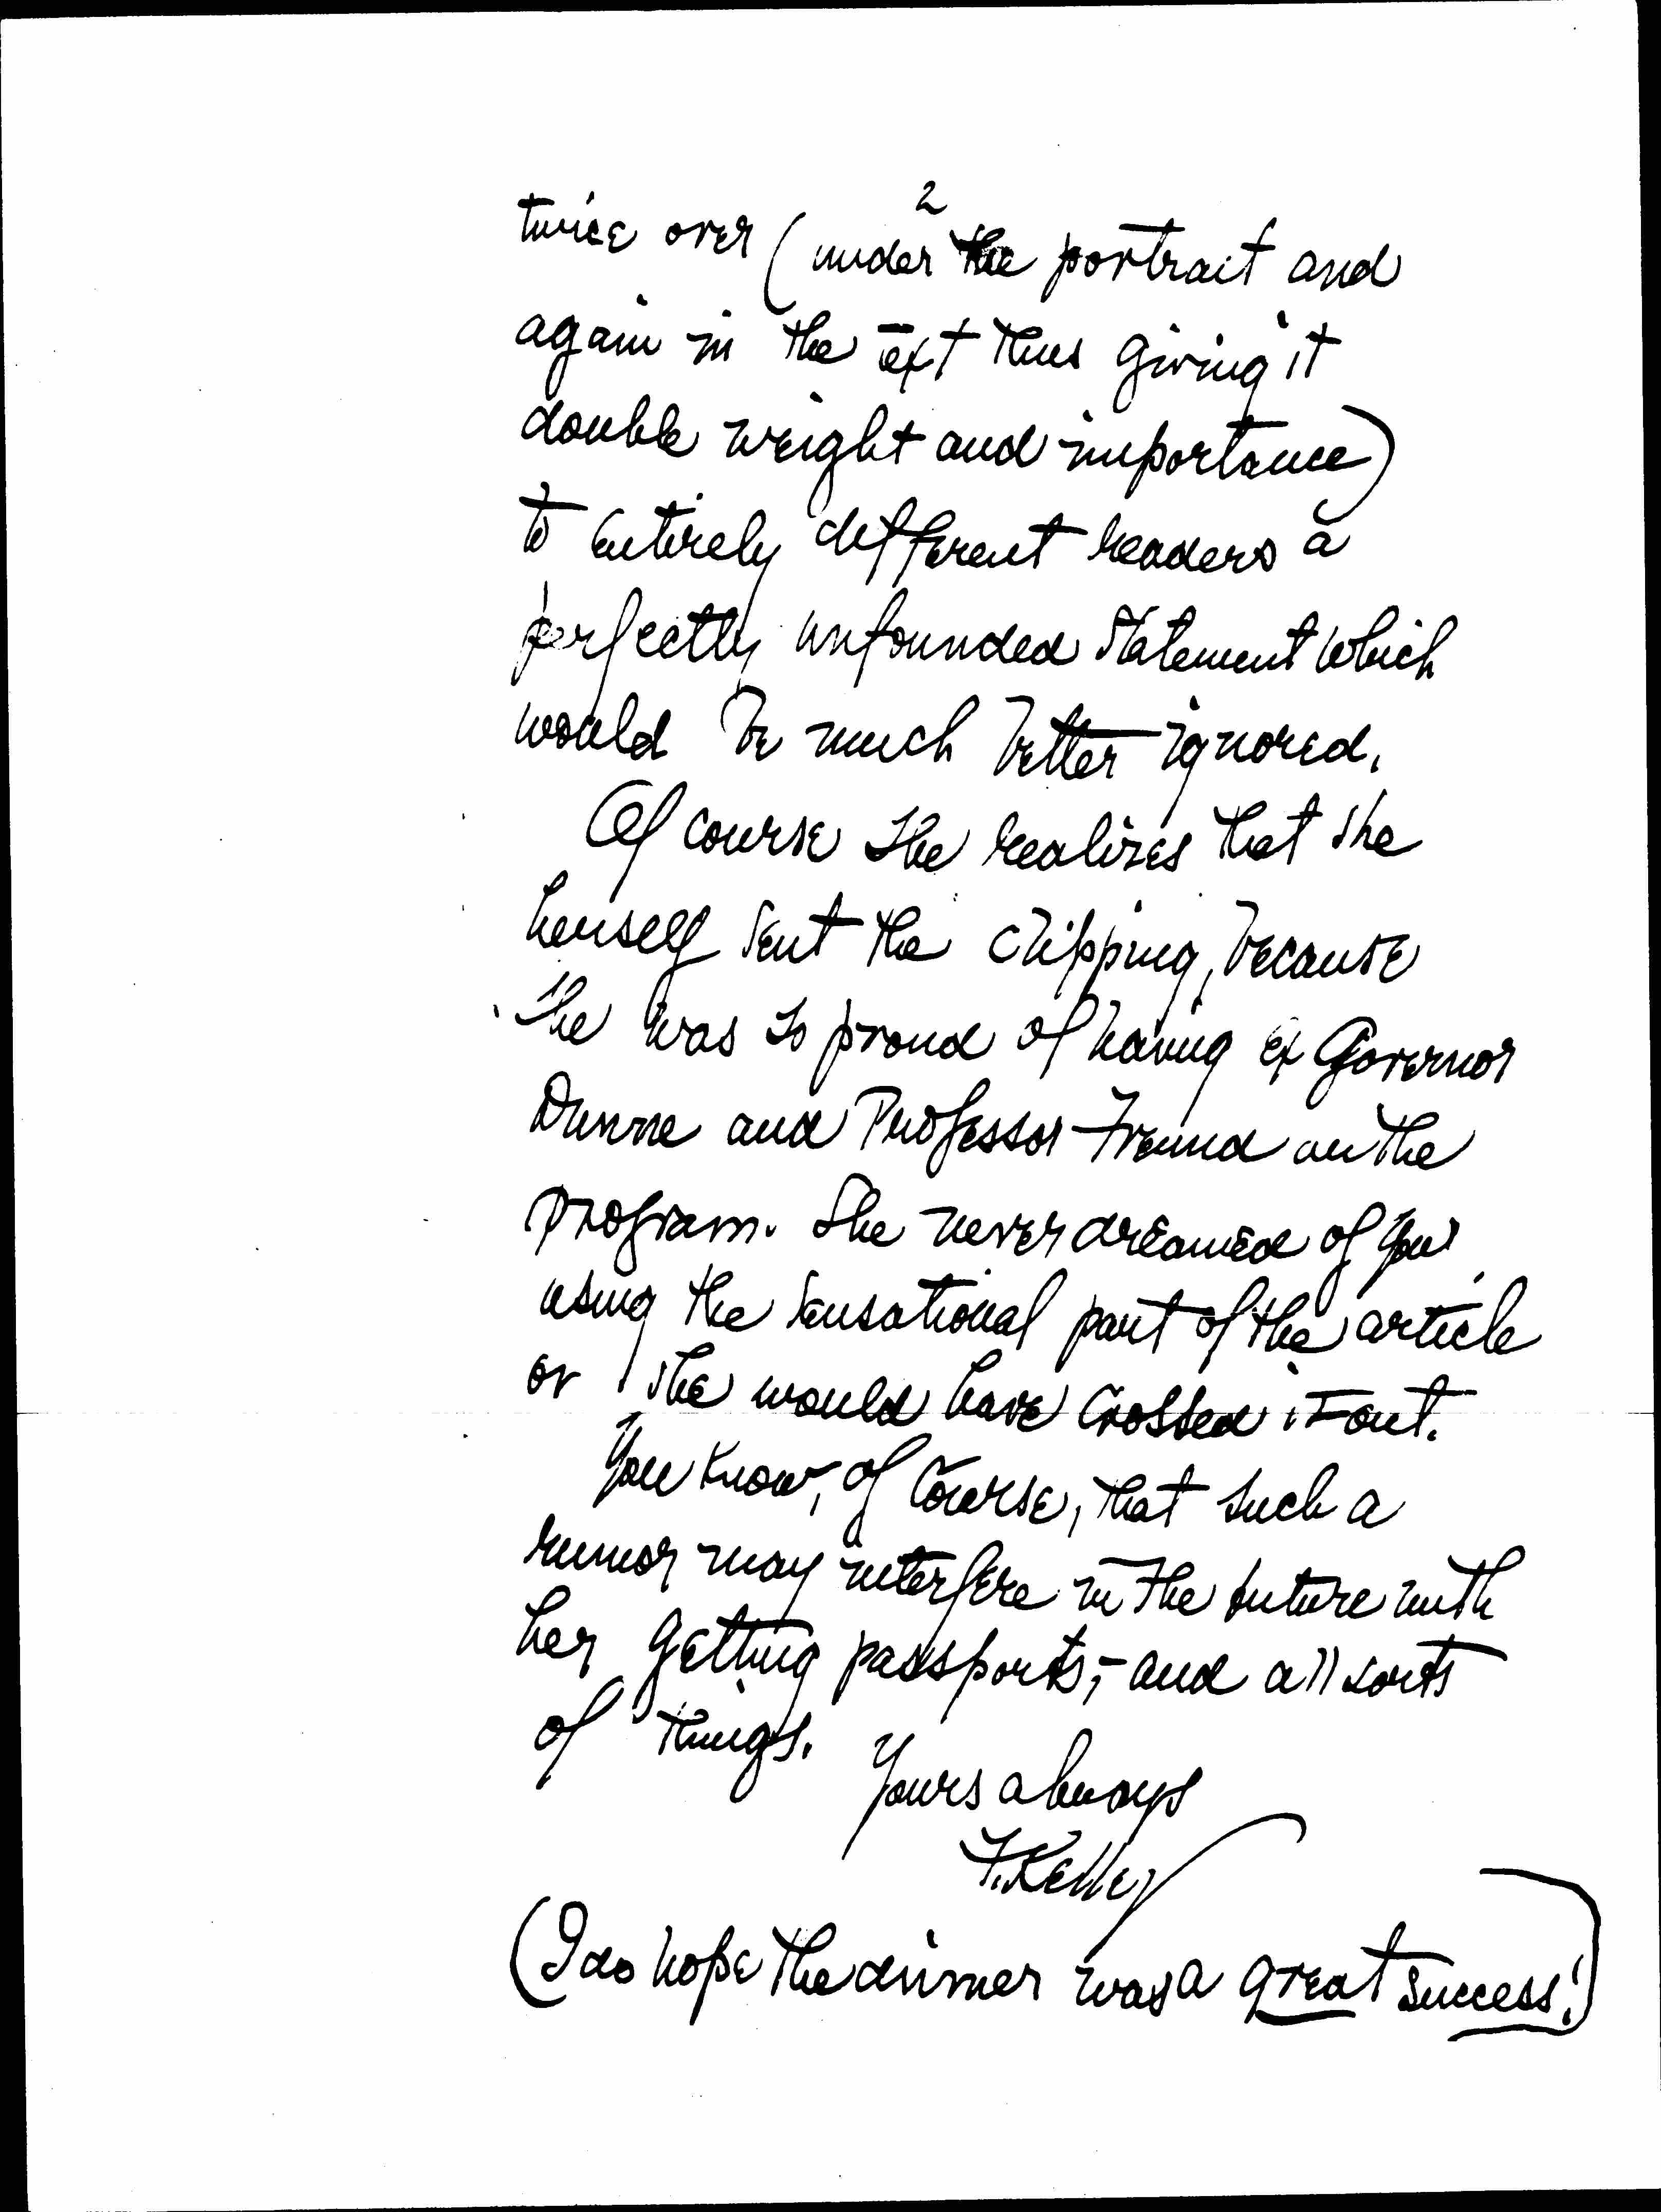 2
twice over (under the portrait and
again in the text thus giving it
double weight and importance)
to entirely different readers a
perfectly unfounded statement which
would be much better ignored.
Of course she realizes that she
herself sent the clipping, because
she was so proud of having Ex Governor
Dunne and Professor Freund on the
program. She never dreamed of you
using the sensational part of the article
or she would have crossed it out.
You know, of course, that such a
rumor may interfere in the future with
her getting passports, - and all sorts
of things.
Yours always
F. Kelley
(I do hope the dinner was a great success!)